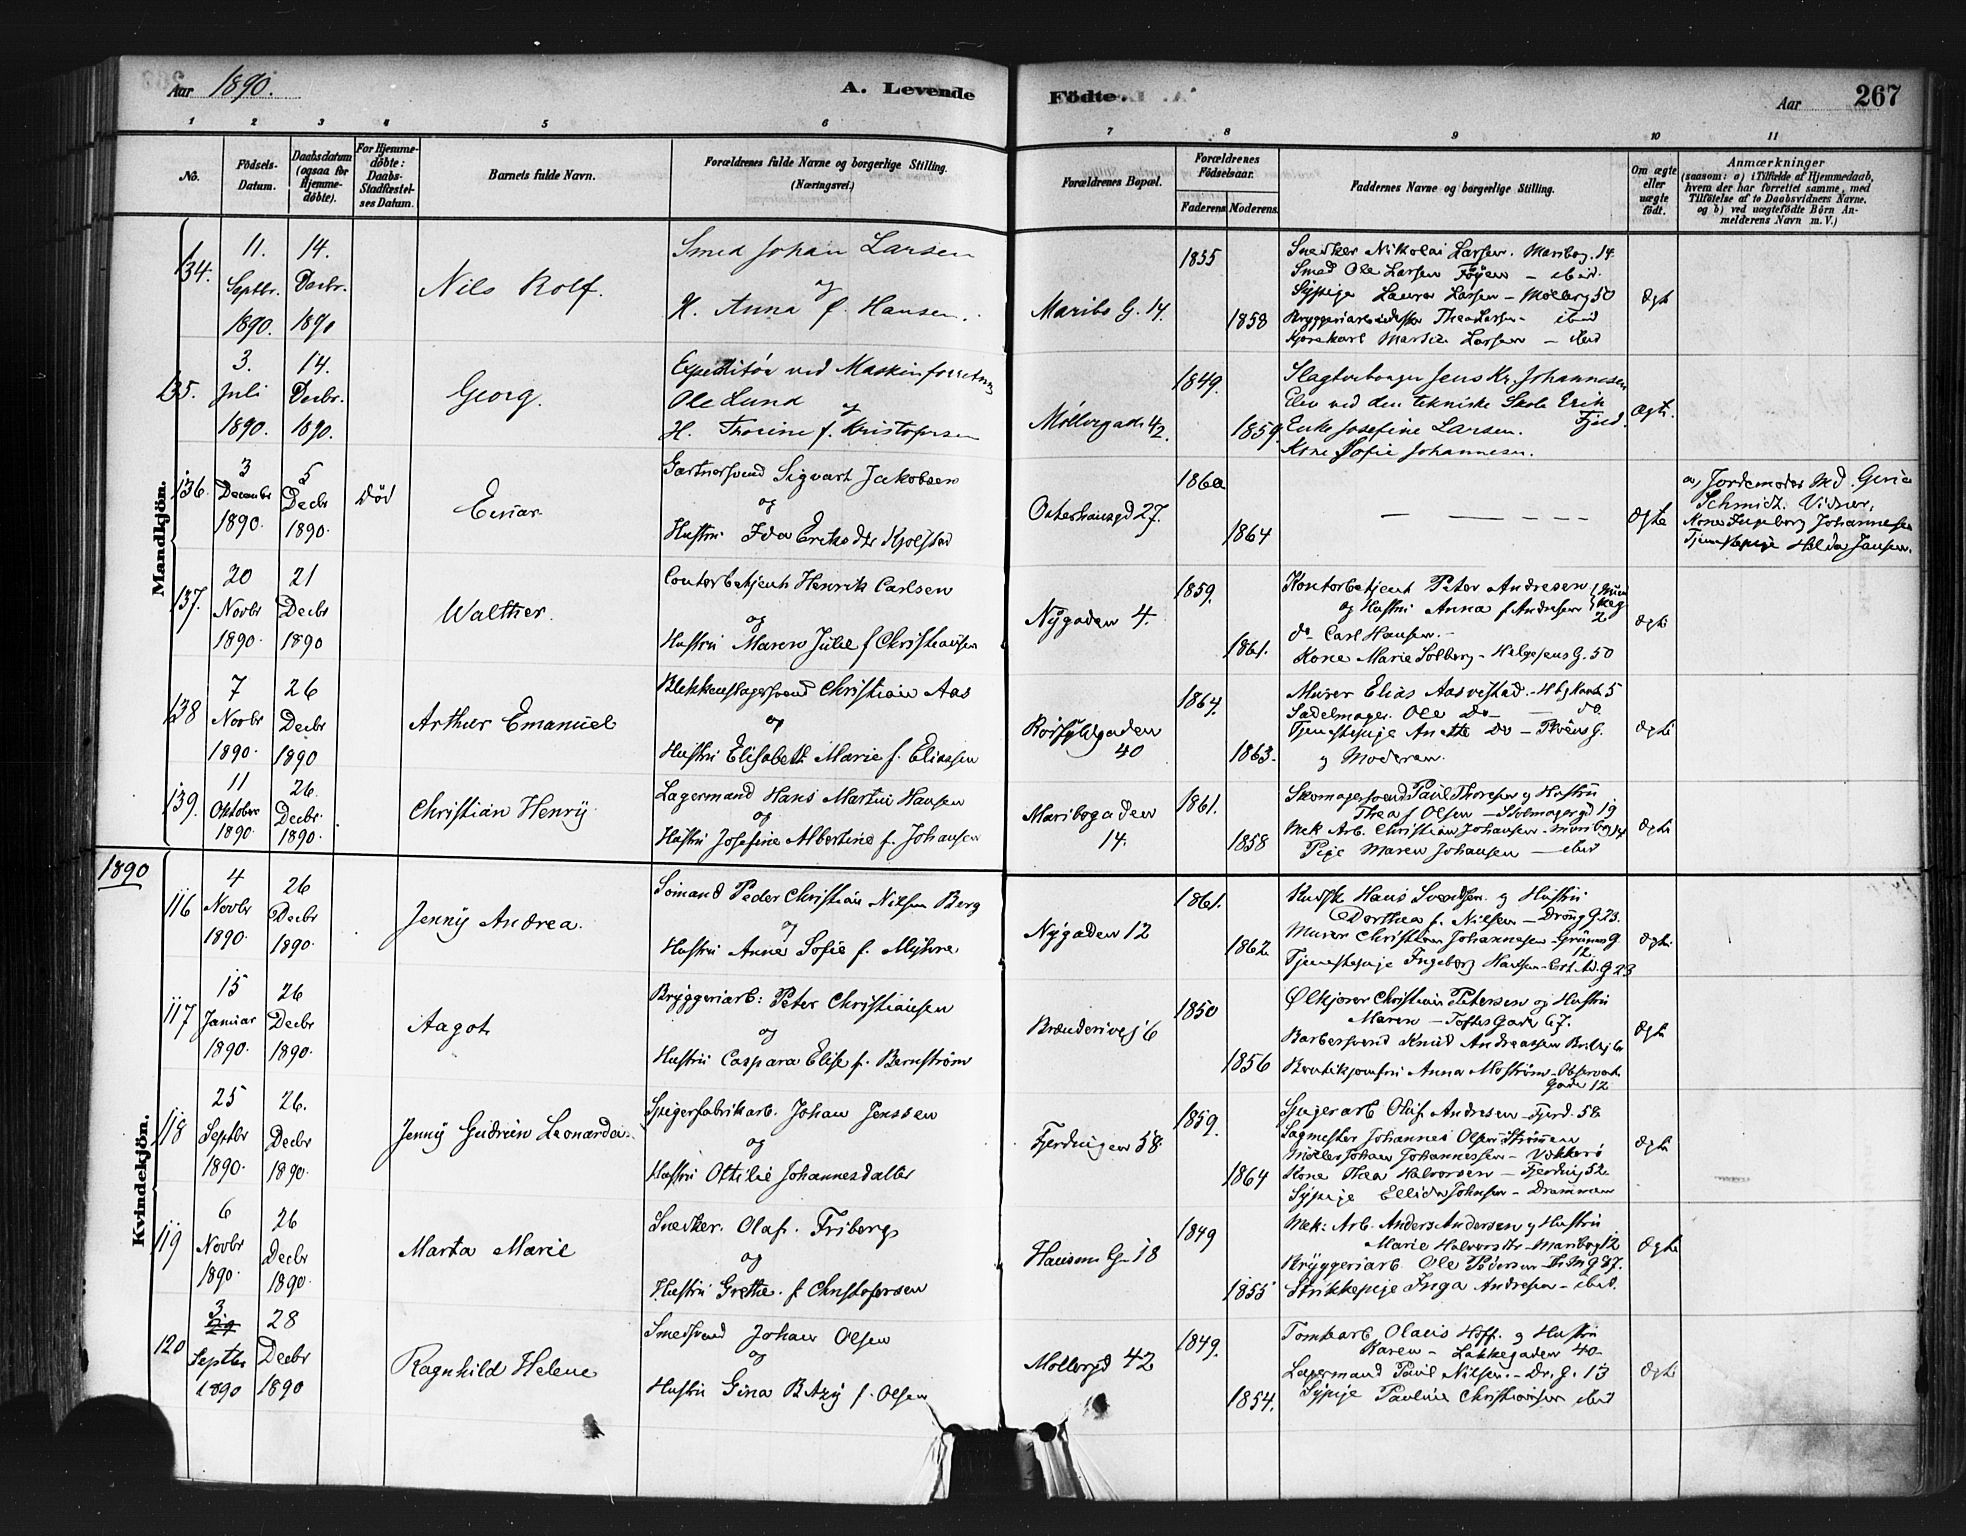 Aar 1890.
A. Levende
Födte.
Aar
267
1 2 3 4 5 6 7 8 9 10 11
No.
Födsels-Datum.
Daabsdatum (ogsaa for Hjemme-døbte).
For Hjemme-døbte: Daabs-Stadfæstel-ses Datum.
Barnets fulde Navn.
Forældrenes fulde Navne og borgerlige Stilling. (Næringsvei.)
Forældrenes Bopæl.
Forældrenes Fødselsaar.
Faderens. Moderens.
Faddernes Navne og borgerlige Stilling.
Om ægte eller uægte født.
Anmærkninger
(saasom: a) i Tilfælde af Hjemmedaab,
hvem der har forrettet samme, med
Tilføielse af to Daabsvidners Navne.
og b) ved uægtefødte Börn An-
melderens Navn m. V.)
Mandkjön.
134.
11. Septbr. 1890.
14. Decbr. 1890
Nils Rolf.
Smed Johan Larsen
og
H. Anna f. Hansen.
Maribo G. 14.
1855
1858
Snedker Nikolai Larsen. Maribog. 14.
Smed Ole Larsen Føyen – ibid.
Sypige Laura Larsen – Møllerg 50
Bryggeriarbeiderske Thea Larsen – ibid
Kjørekarl Martin Larsen – ibid
Ægte
135.
3. Juli 1890.
14. Decbr. 1890.
Georg.
Expeditør ved Maskinforretning
Ole Lund
og
H. Thorine f. Kristofersen
Møllergaden 42.
1849.
1859.
Slagterborger Jens Kr. Johannesen
Elev ved den tekniske Skole Erik
Enke Josefine Larsen.
Kone Sofie Johannesen.
Ægte.
136.
3 Decembr 1890.
5 Decbr 1890.
Død
Einar
Gartnersvend Sigvart Jakobsen
og
Hustru Ida Eriksdtr Kjolstad
Osterhausgd 27.
1860
1864
— — — — —
Ægte
a, Jordemoder Md. Gina
Schmidt. Vidner,
Kone Ingeborg Johannesen
Tjenestepige Hilda Jansen.
137.
20 Novbr 1890.
21 Decbr 1890
Walther.
Contorbetjent Henrik Carlsen
og
Hustru Maren Julie f Christiansen
Nygaden 4.
1859.
1861.
Kontorbetjent Peter Andresen
og Hustru Anna f Andresen
do Carl Hansen. –
Kone Marie Solberg – Helgesens G. 50
Ægte
138
7 Novbr 1890.
26 Decbr 1890
Arthur Emanuel
Blikkenslagersvend Christian Aas
og
Hustru Elisabeth Marie f. Eliassen
Rørfyldgaden 40
1864.
1863.
Murer Elias Aasvestad
Sadelmager Ole do –
Tjenestepige Anette do –
og Moderen.
Ægte
139.
11 Oktober 1890.
26. Decbr 1890.
Christian Henry
Lagermand Hans Martin Hansen
og
Hustru Josefine Albertine f. Johansen
Maribogaden 14.
1861.
1858
Skomagersvend Paul Thoresen og Hustru
Thea f Olsen – Stolmagergd 19
Mek Arb. Christian Johansen – Maribog 14
Pige Maren Johansen – ibid
Ægte
1890
Kvindekjön.
116
4 Novbr 1890.
26 Decbr 1890.
Jenny Andrea.
Sømand Peder Christian Nilsen Berg
og
Hustru Anne Sofie f. Myhre
Nygaden 12
1861.
1862
Kudsk Hans Svendsen og Hustru
Dorthea f. Nilsen – Dronng G. 23.
Murer Christian Johannesen – Grünersg
12.
Tjenestepige Ingeborg Hansen
Ægte
117
15 Januar 1890.
26 Decbr 1890.
Aagot
Bryggeriarb: Peter Christiansen
og
Hustru Caspara Elise f. Bernström
Brænderivej 6
1850
1856
Ølkjører Christian Petersen og Hustru
Maren – Toftes Gade 67.
Barbersvend Knud Andreassen
Butikjomfru Anna Moström – Observat.
Gade 12
Ægte
118
25 Septbr 1890.
26. Decbr 1890.
Jenny Gudrun Leonarda.
Spigerfabrikarb. Johan Jenssen
og
Hustru Ottilie Johannesdatter
Fjerdingen 58.
1859.
1864
Spigerarb Oluf Andresen – Fjerd. 58
Sagmester Johannes Olsen – Strømmen
Møller Johan Johannessen – Vøkkerø
Kone Thea Halvorsen – Fjerding 52
Sypige Ellida Johnsen – Drammen
Ægte
119
6 Novbr 1890.
26 Decbr 1890.
Marta Marie
Snedker. Olaf. Friberg
og
Hustru Grethe. f Christofersen
Hausmans G. 18
1849
1855
Mek: Arb. Anders Andersen og Hustru
Marie Halvorsdtr – Maribog 12
Bryggeriarb Ole Pedersen
Strikkepige Inga Andresen – ibid.
Ægte
120
3. Septbr 1890
28 Decbr 1890
Ragnhild Helene
Smedsvend Johan Olsen
og
Hustru Gina Betzy f. Olsen
Møllergd 42
1849.
1854.
Tomtearb Olaus Hoff. og Hustru
Karen – Lakkegaden 40 –
Lagermand Paul Nilsen – Dr. G. 13
Sypige Pauline Christiansen ibid
Ægte